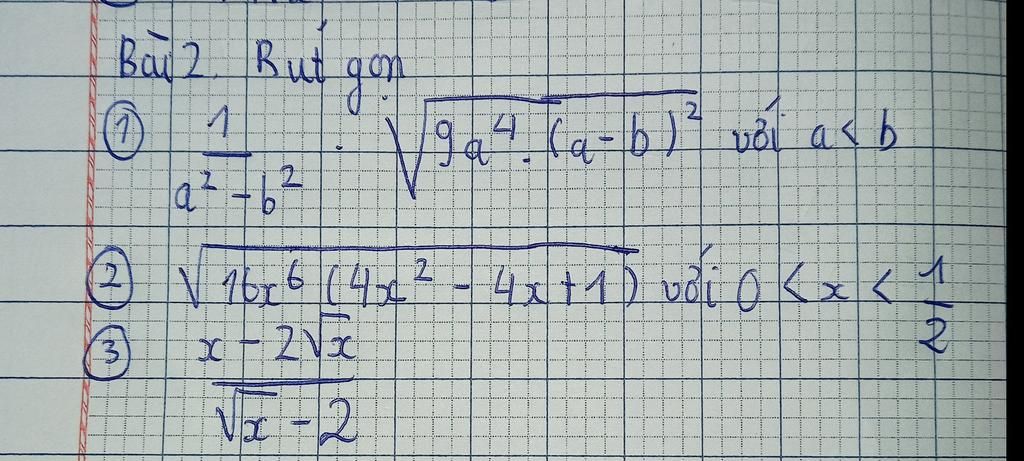 Bài 2. Rut gọn
① 1/(a² - b²) . √(9a⁴.(a-b)²) với a < b
② √(16x⁶(4x² - 4x+1)) với 0 < x < 1/2
③ (x - 2√x)/(√x - 2)